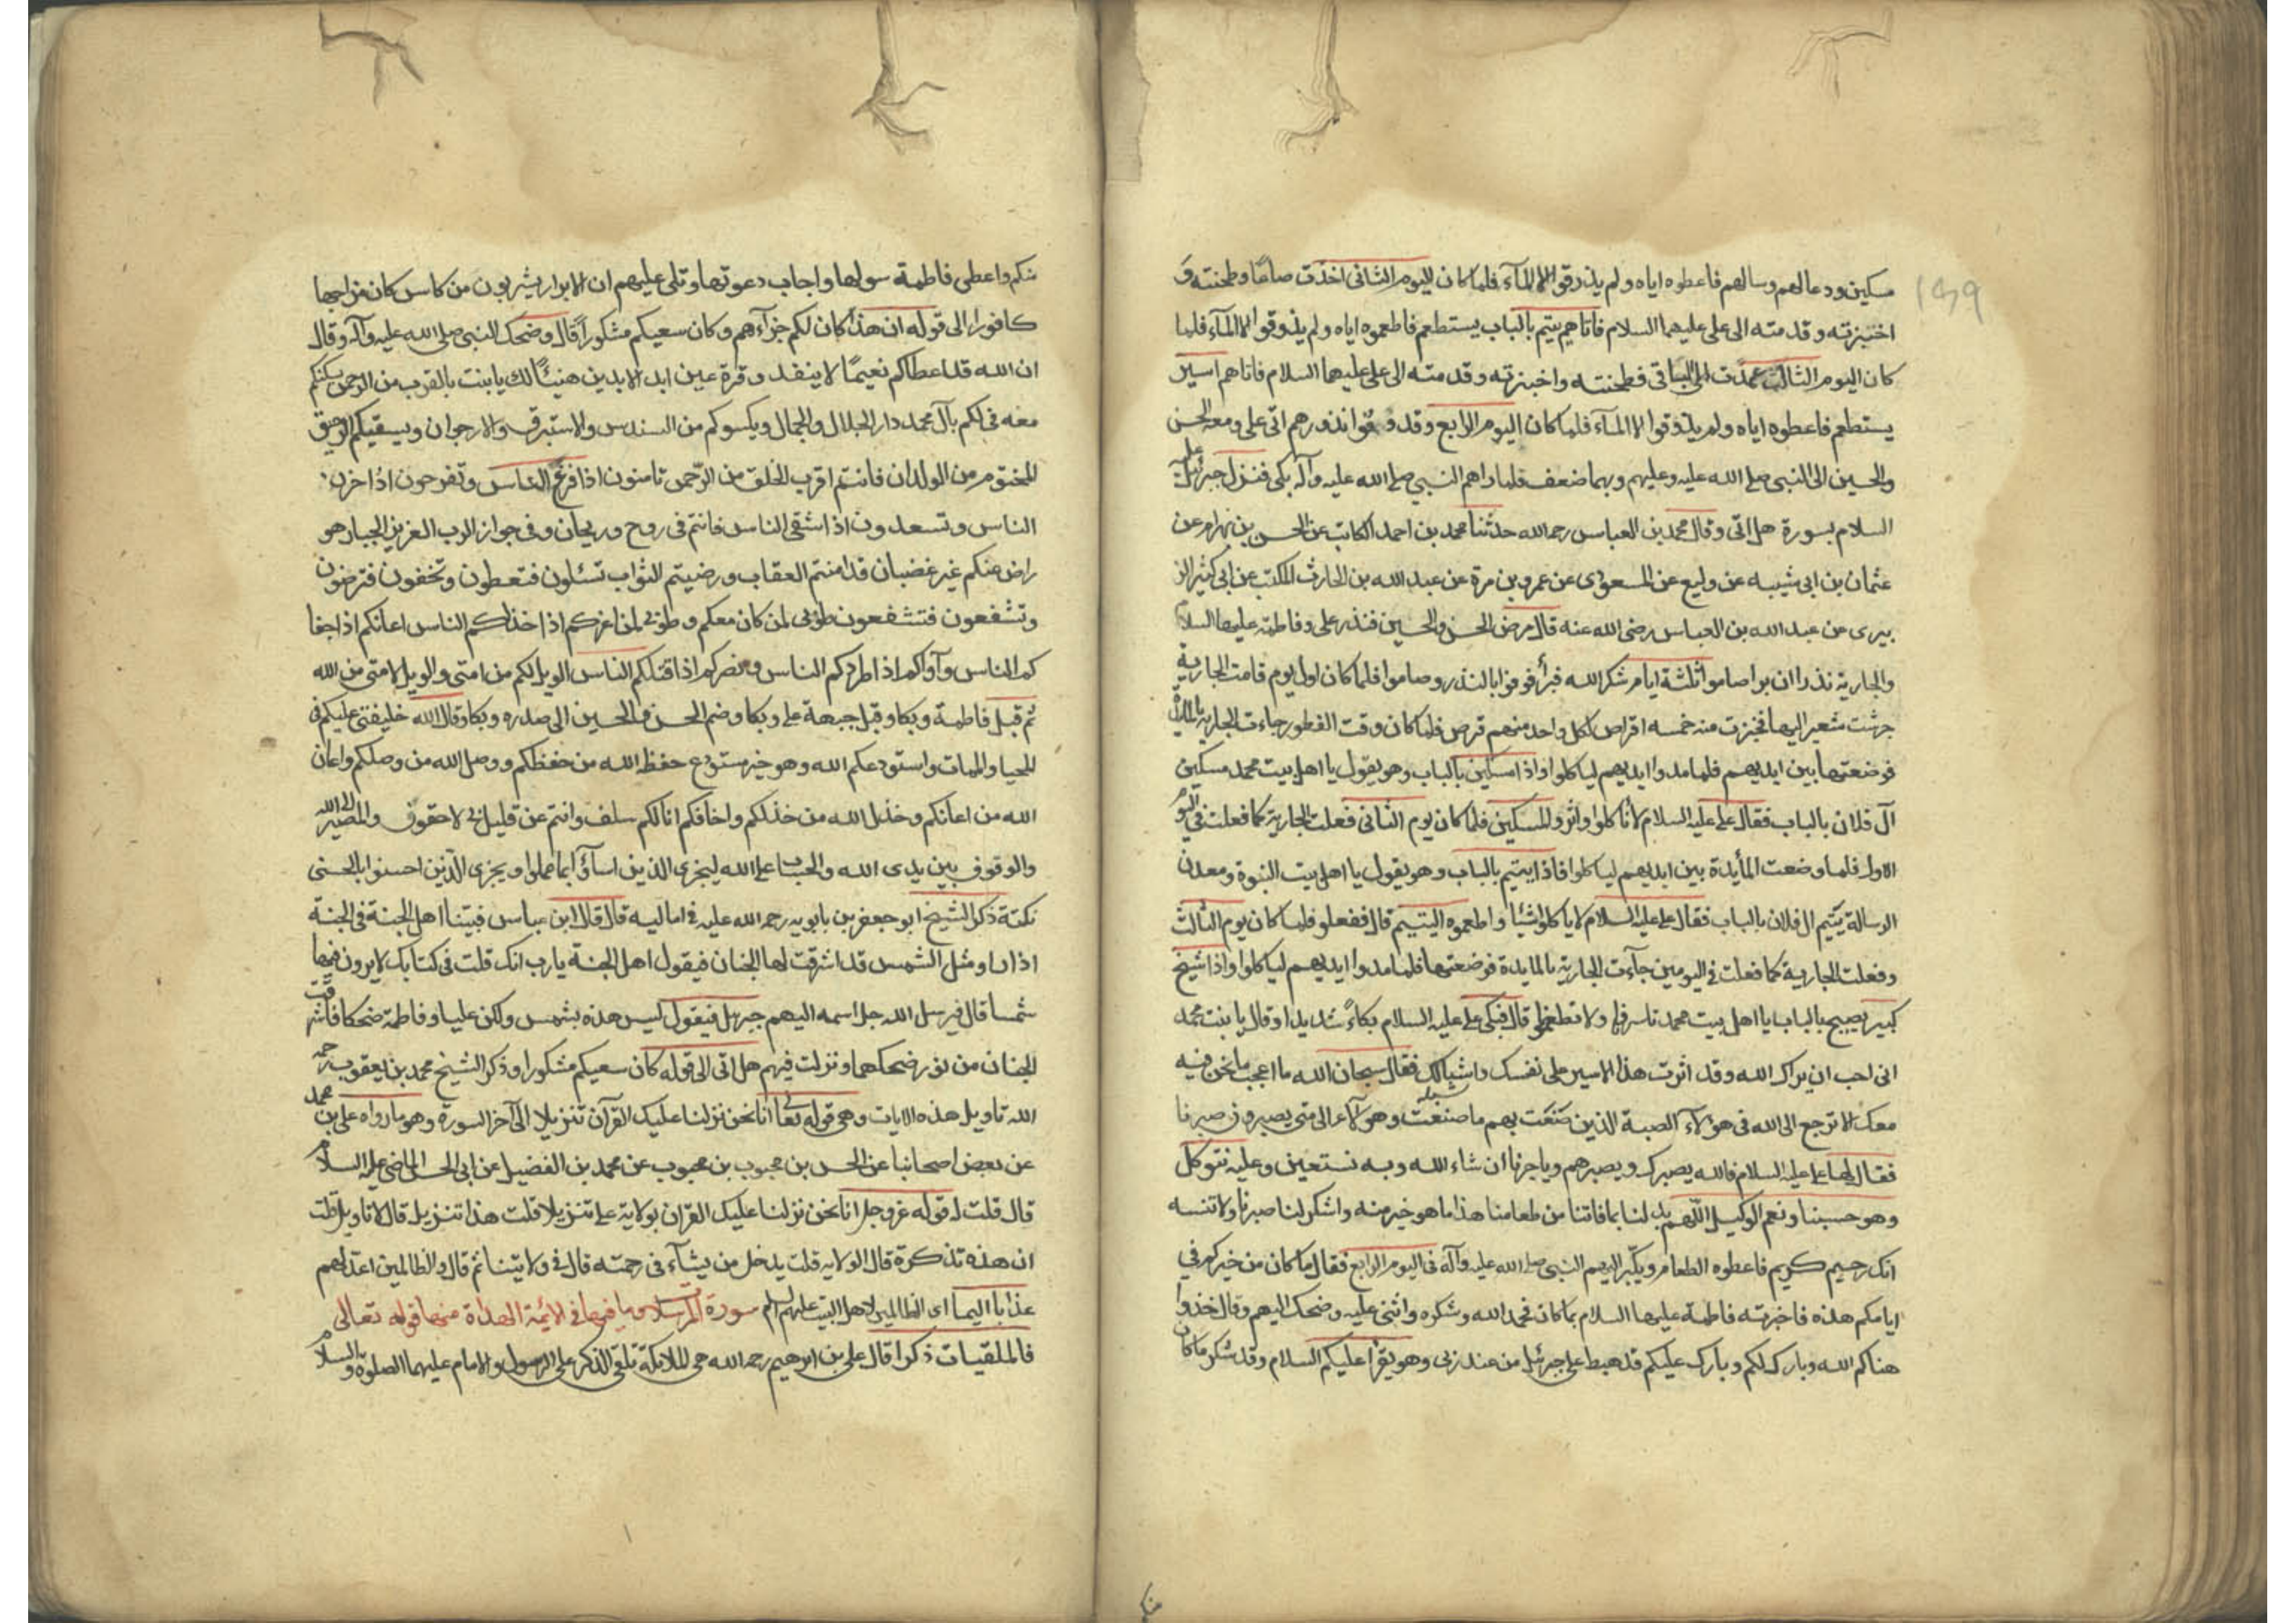 ١٣٩
مسكين ودعالهم وسالهم فاعطوه اياه ولم يذوقوا الا المآء فلما كان اليوم الثانى اخذت صاعًا وطحنته و
اختبزته وقدمته الى على عليهما السلام فاتاهم يتيم بالباب يستطعم فاطعموه اياه ولم يذوقوا الا المآء فلما
كان اليوم الثالث عمدت الى الباقى فطحنته واخبزته وقدمته الى على عليهما السلام فاتاهم اسير
يستطعم فاعطوه اياه ولم يذوقوا الا المآء فلما كان اليوم الرابع وقد قو انذورهم اتى على ومعه الحسن
والحسين الى النبى صلى الله عليه وعليهم وبهما ضعف فلما راهم النبى صلى الله عليه وآله بكى فنزل جبرئيل عليه
السلام بسورة هل اتى وقال محمد بن العباس رحمه الله حدثنا محمد بن احمد الكاتب عن الحسن بن بهرام عن
عثمان بن ابى شيبه عن وليع عن المسعودى عن عمرو بن مرة عن عبد الله بن الحارث المكتب عن ابى كثير الز
بيرى عن عبد الله بن العباس رضى الله عنه قال مرض الحسن والحسين فنذر على وفاطمة عليهما السلام
والجارية نذرا ان برا صاموا ثلثة ايام شكرا لله فبرأ فوفوا بالنذر وصاموا فلما كان اول يوم قامت الجارية
جرشت شعيرا لها فخبزت منه خمسه اقراص لكل واحد منهم قرص فلما كان وقت الفطور جاءت الجارية بالمائدة
فوضعتها بين ايديهم فلما مدوا ايديهم لياكلوا واذا مسكين بالباب وهو يقول يا اهل بيت محمد مسكين
آل فلان بالباب فقال على عليه السلام لا تاكلوا واثروا المسكين فلما كان يوم الثانى فعلت الجارية كما فعلت فى اليوم
الاول فلما وضعت المأيدة بين ايديهم لياكلوا فاذا يتيم بالباب وهو يقول يا اهل بيت النبوة ومعدن
الرسالة يتيم ال فلان بالباب فقال على عليه السلام لا ياكلوا شيئا واطعموه اليتيم قال ففعلو فلما كان يوم الثالث
وفعلت الجارية كما فعلت فى اليومين جآءت الجارية بالمايدة فوضعتها فلما مدوا ايديهم لياكلوا واذا شيخ
كبير يصيح بالباب يا اهل بيت محمد تاسرونا ولا تطعمونا قال فبكى على عليه السلام بكاءً شديدا وقال يا بنت محمد
انى احب ان يراك الله وقد اثرت هذا الاسير على نفسك واشبالك فقال سبحان الله ما اعجب ما نحن فيه
معك الا ترجع الى الله فى هؤلاء الصبية الذين صنعت بهم ما صنعت وهؤلاء الى متى يصبرون صبرنا
فقال لها على عليه السلام فالله يصبرك ويصبرهم وياجرنا ان شاء الله وبه نستعين وعليه نتوكل
وهو حسبنا ونعم الوكيل اللهم بدلنا بما فاتنا من طعامنا هذا ما هو خير منه واشكر لنا صبرنا ولا تنسه
انك رحيم كريم فاعطوه الطعام وبكّر اليهم النبى صلى الله عليه وآله فى اليوم الرابع فقال ما كان من خيركم فى
ايامكم هذه فاخبرته فاطمة عليها السلام بما كان فحمد الله وشكره واثنى عليه وضحك اليهم وقال خذوا
هناكم الله وبارك لكم وبارك عليكم قد هبط على جبرئيل من عند ربى وهو يقرا عليكم السلام وقد شكر ما كان
منكم
منكم واعطى فاطمة سولها واجاب دعوتها وتلى عليهم ان الابرار يشربون من كاس كان مزاجها
كافورا الى قوله ان هذا كان لكم جزآءهم وكان سعيكم مشكوراً قال وضحك النبى صلى الله عليه وآله وقال
ان الله قد اعطاكم نعيمًا لا ينفد وقرة عين ابد الابدين هنيئًا لك يا بنت بالقرب من الرحمن يسكنكم
معه فى لكم بآل محمد دار الجلال والجمال ويكسوكم من السندس والاستبرق والارجوان ويسقيكم الرحيق
المختوم من الولدان فانتم اقرب الخلق من الرّحمن تامنون اذا فزع الناس وتفرحون اذا حزن
الناس وتسعدون اذا شقى الناس فانتم فى روح وريحان وفى جوار الرب العزيز الجبار هو
راض عنكم غير غضبان قد امنتم العقاب ورضيتم الثواب تسئلون فتعطون وتخفون فترضون
وتشفعون فتشفعون طوبى لمن كان معكم وطوبى لمن اعزكم اذا خذلكم الناس اعانكم اذا جفا
كم الناس وآواكم اذا طردكم الناس ونصركم اذا قتلكم الناس الويل لكم من امتى والويل لامتى من الله
ثم قبل فاطمة وبكا وقبل جبهة على وبكا وضم الحسن والحسين الى صدره وبكا وقال الله خليفتى عليكم فى
المحيا والممات واستودعكم الله وهو خير مستودع حفظ الله من حفظكم ووصل الله من وصلكم واعان
الله من اعانكم وخذل الله من خذلكم واخافكم انا لكم سلف وانتم عن قليل بى لاحقون والمصير الى الله
والوقوف بين يدى الله والحساب على الله ليجزى الذين اسآؤا بما عملوا ويجزى الّذين احسنوا بالحسنى
نكتة ذكر الشيخ ابو جعفر بن بابويه رحمه الله عليه فى اماليه قال قال ابن عباس فبينا اهل الجنة فى الجنة
اذ راوا مثل الشمس قد اشرقت لها الجنان فيقول اهل الجنة يا رب انك قلت فى كتابك لا يرون فيها
شمسا قال فيرسل الله جل اسمه اليهم جبرئيل فيقول ليس هذه بشمس ولكن عليا وفاطمة ضحكا فاشرقت
الجنان من نور ضحكهما ونزلت فيهم هل اتى الى قوله كان سعيكم مشكورا وذكر الشيخ محمد بن يعقوب رحمه
الله تاويل هذه الايات وهى قوله تعالى انا نحن نزلنا عليك القرآن تنزيلا الى آخر السورة وهو ما رواه على بن محمد
عن بعض اصحابنا عن الحسن بن محبوب بن محبوب عن محمد بن الفضيل عن ابى الحسن الماضى عليه السلام
قال قلت له قوله عز وجل انا نحن نزلنا عليك القران بولاية على تنزيلا قلت هذا تنزيل قال لا تاويل قلت
ان هذه تذكرة قال الولايه قلت يدخل من يشآء فى رحمته قال فى ولايتنا ثم قال والظالمين اعد لهم
عذابا اليما اى الظالمين لاهل البيت عليهم السلام سورة المرسلات ما فيها فى الائمة الهداة منها قوله تعالى
فالملقيات ذكرا قال على بن ابرهيم رحمه الله هى الملائكة تلقى الذكر على الرسول والامام عليهما الصلوة والسلام